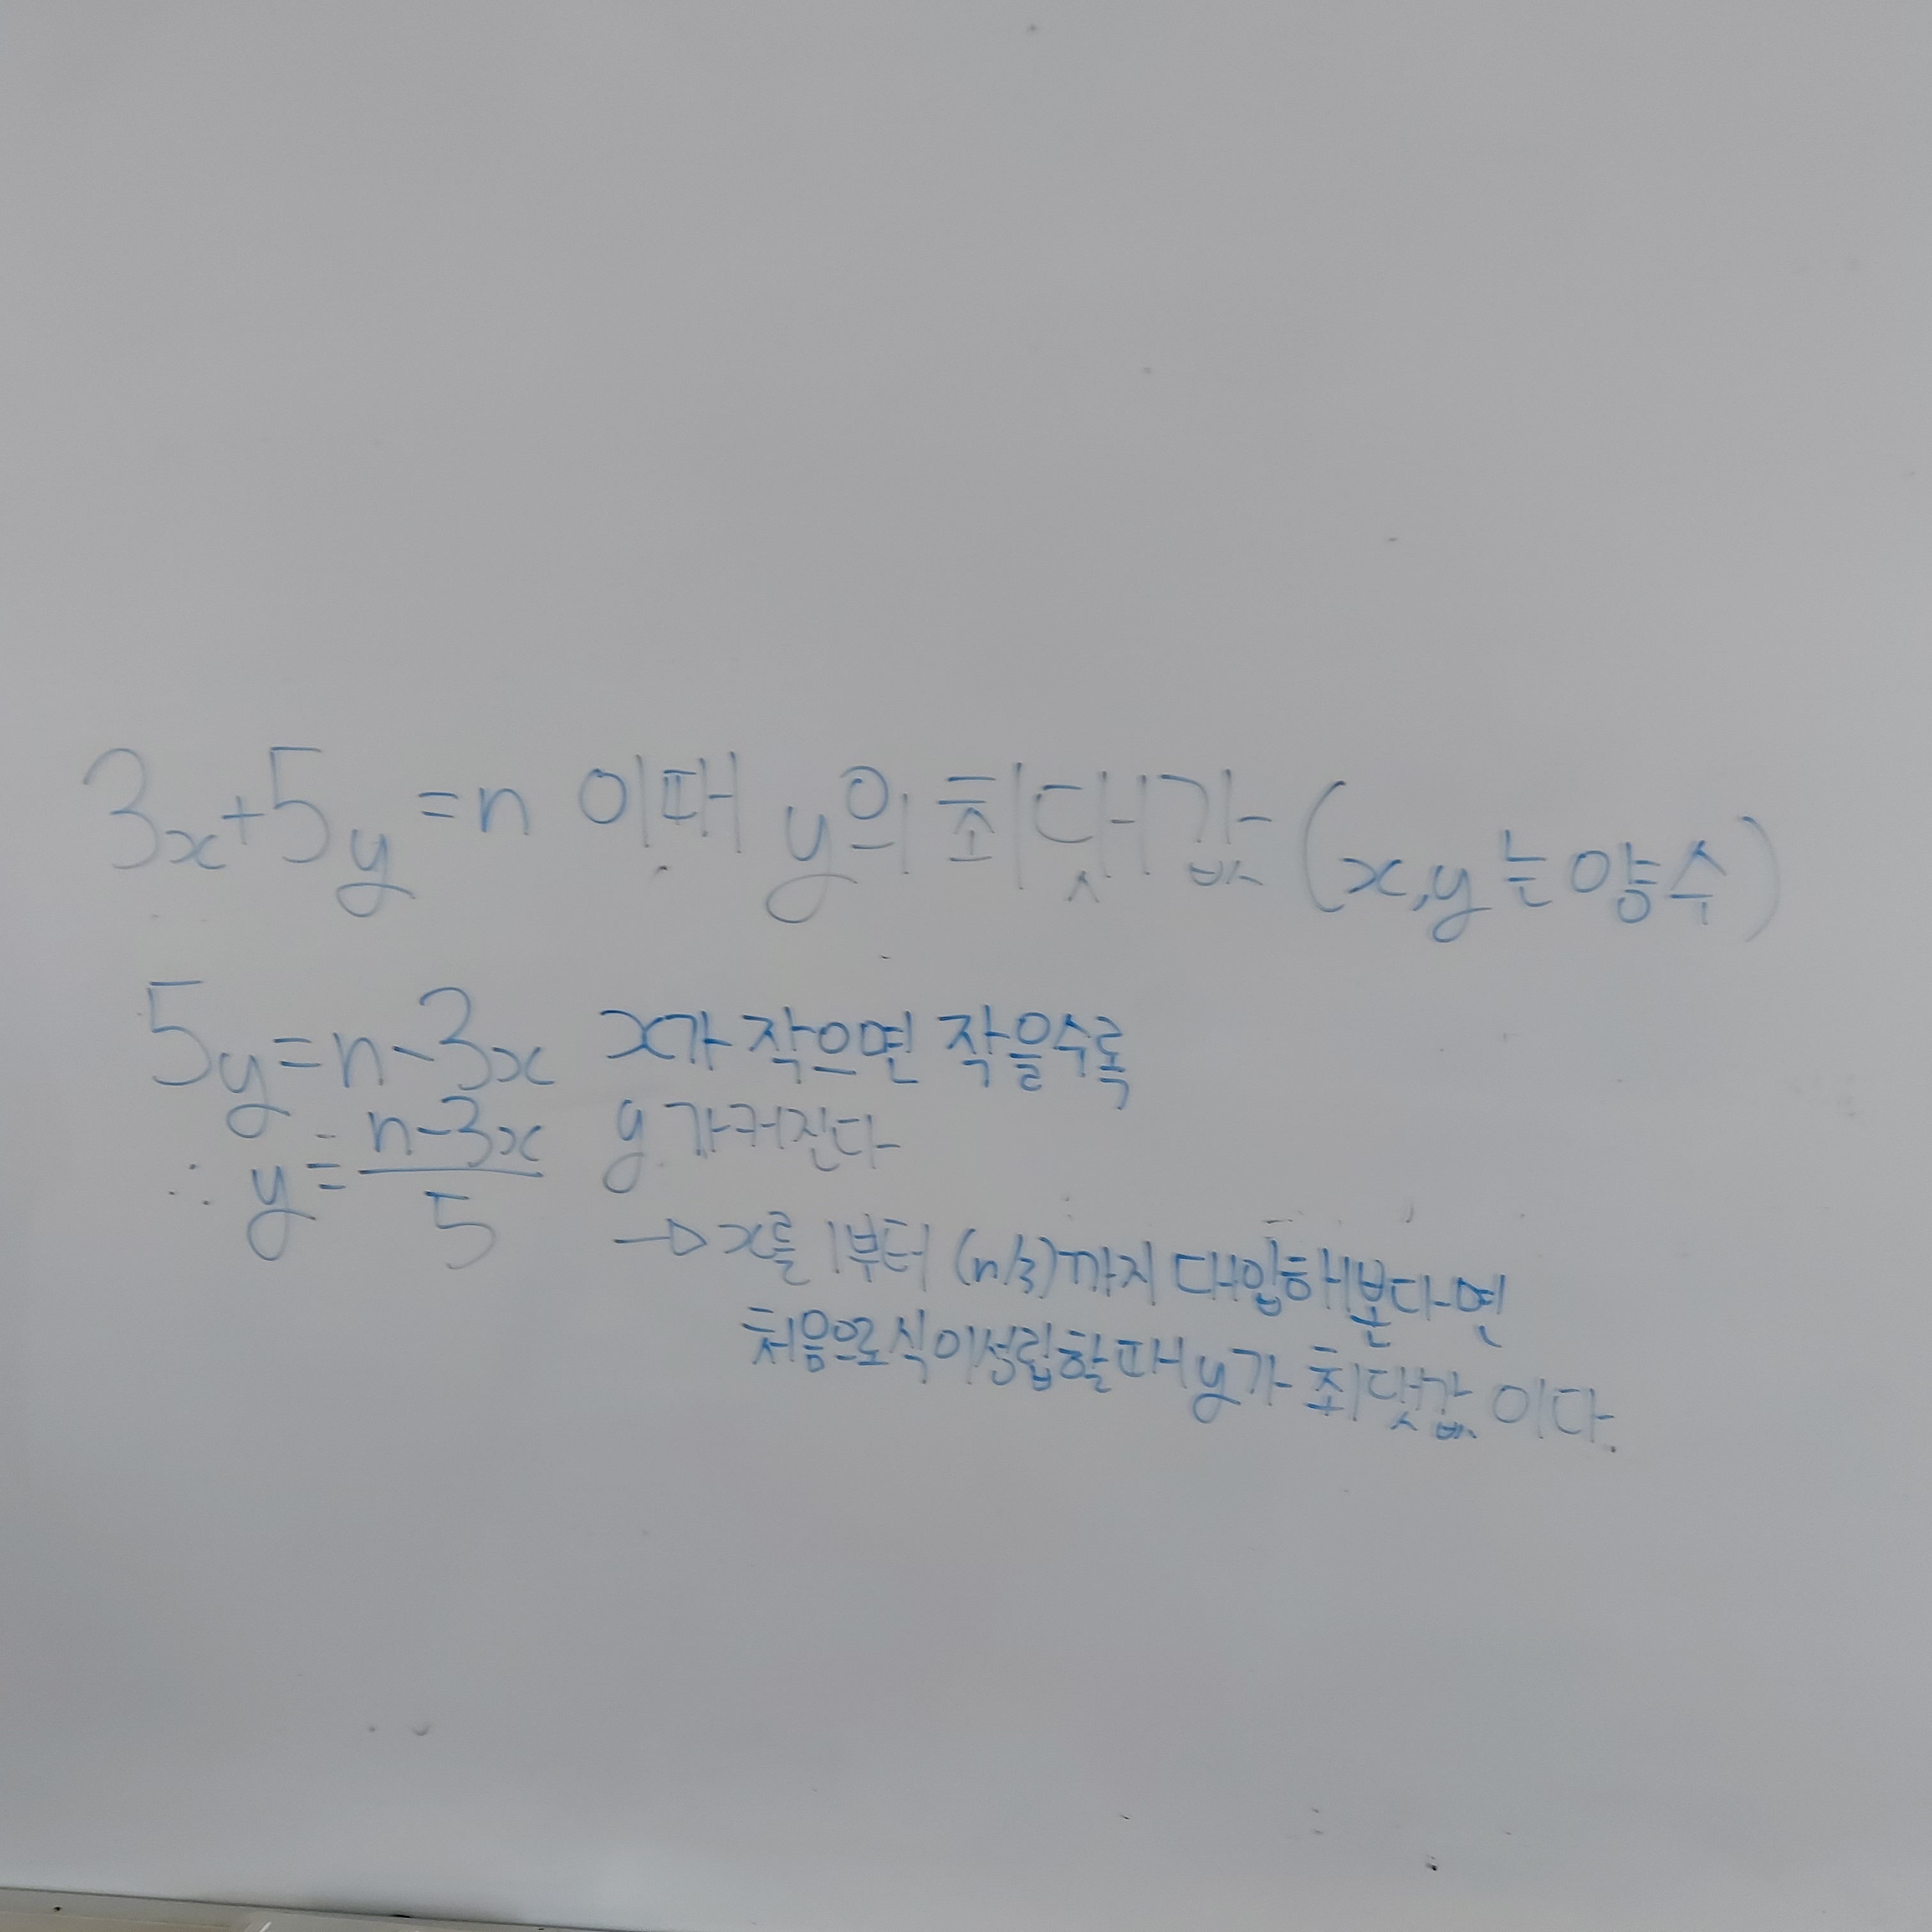 3x+5y=n 이때 y의 최댓값 (x,y는 양수)
5y=n-3x x가 작으면 작을수록
∴ y=(n-3x)/5 y가 커진다
→ x를 1부터 (n/3)까지 대입해본다면
처음으로 식이 성립할때 y가 최댓값이다.